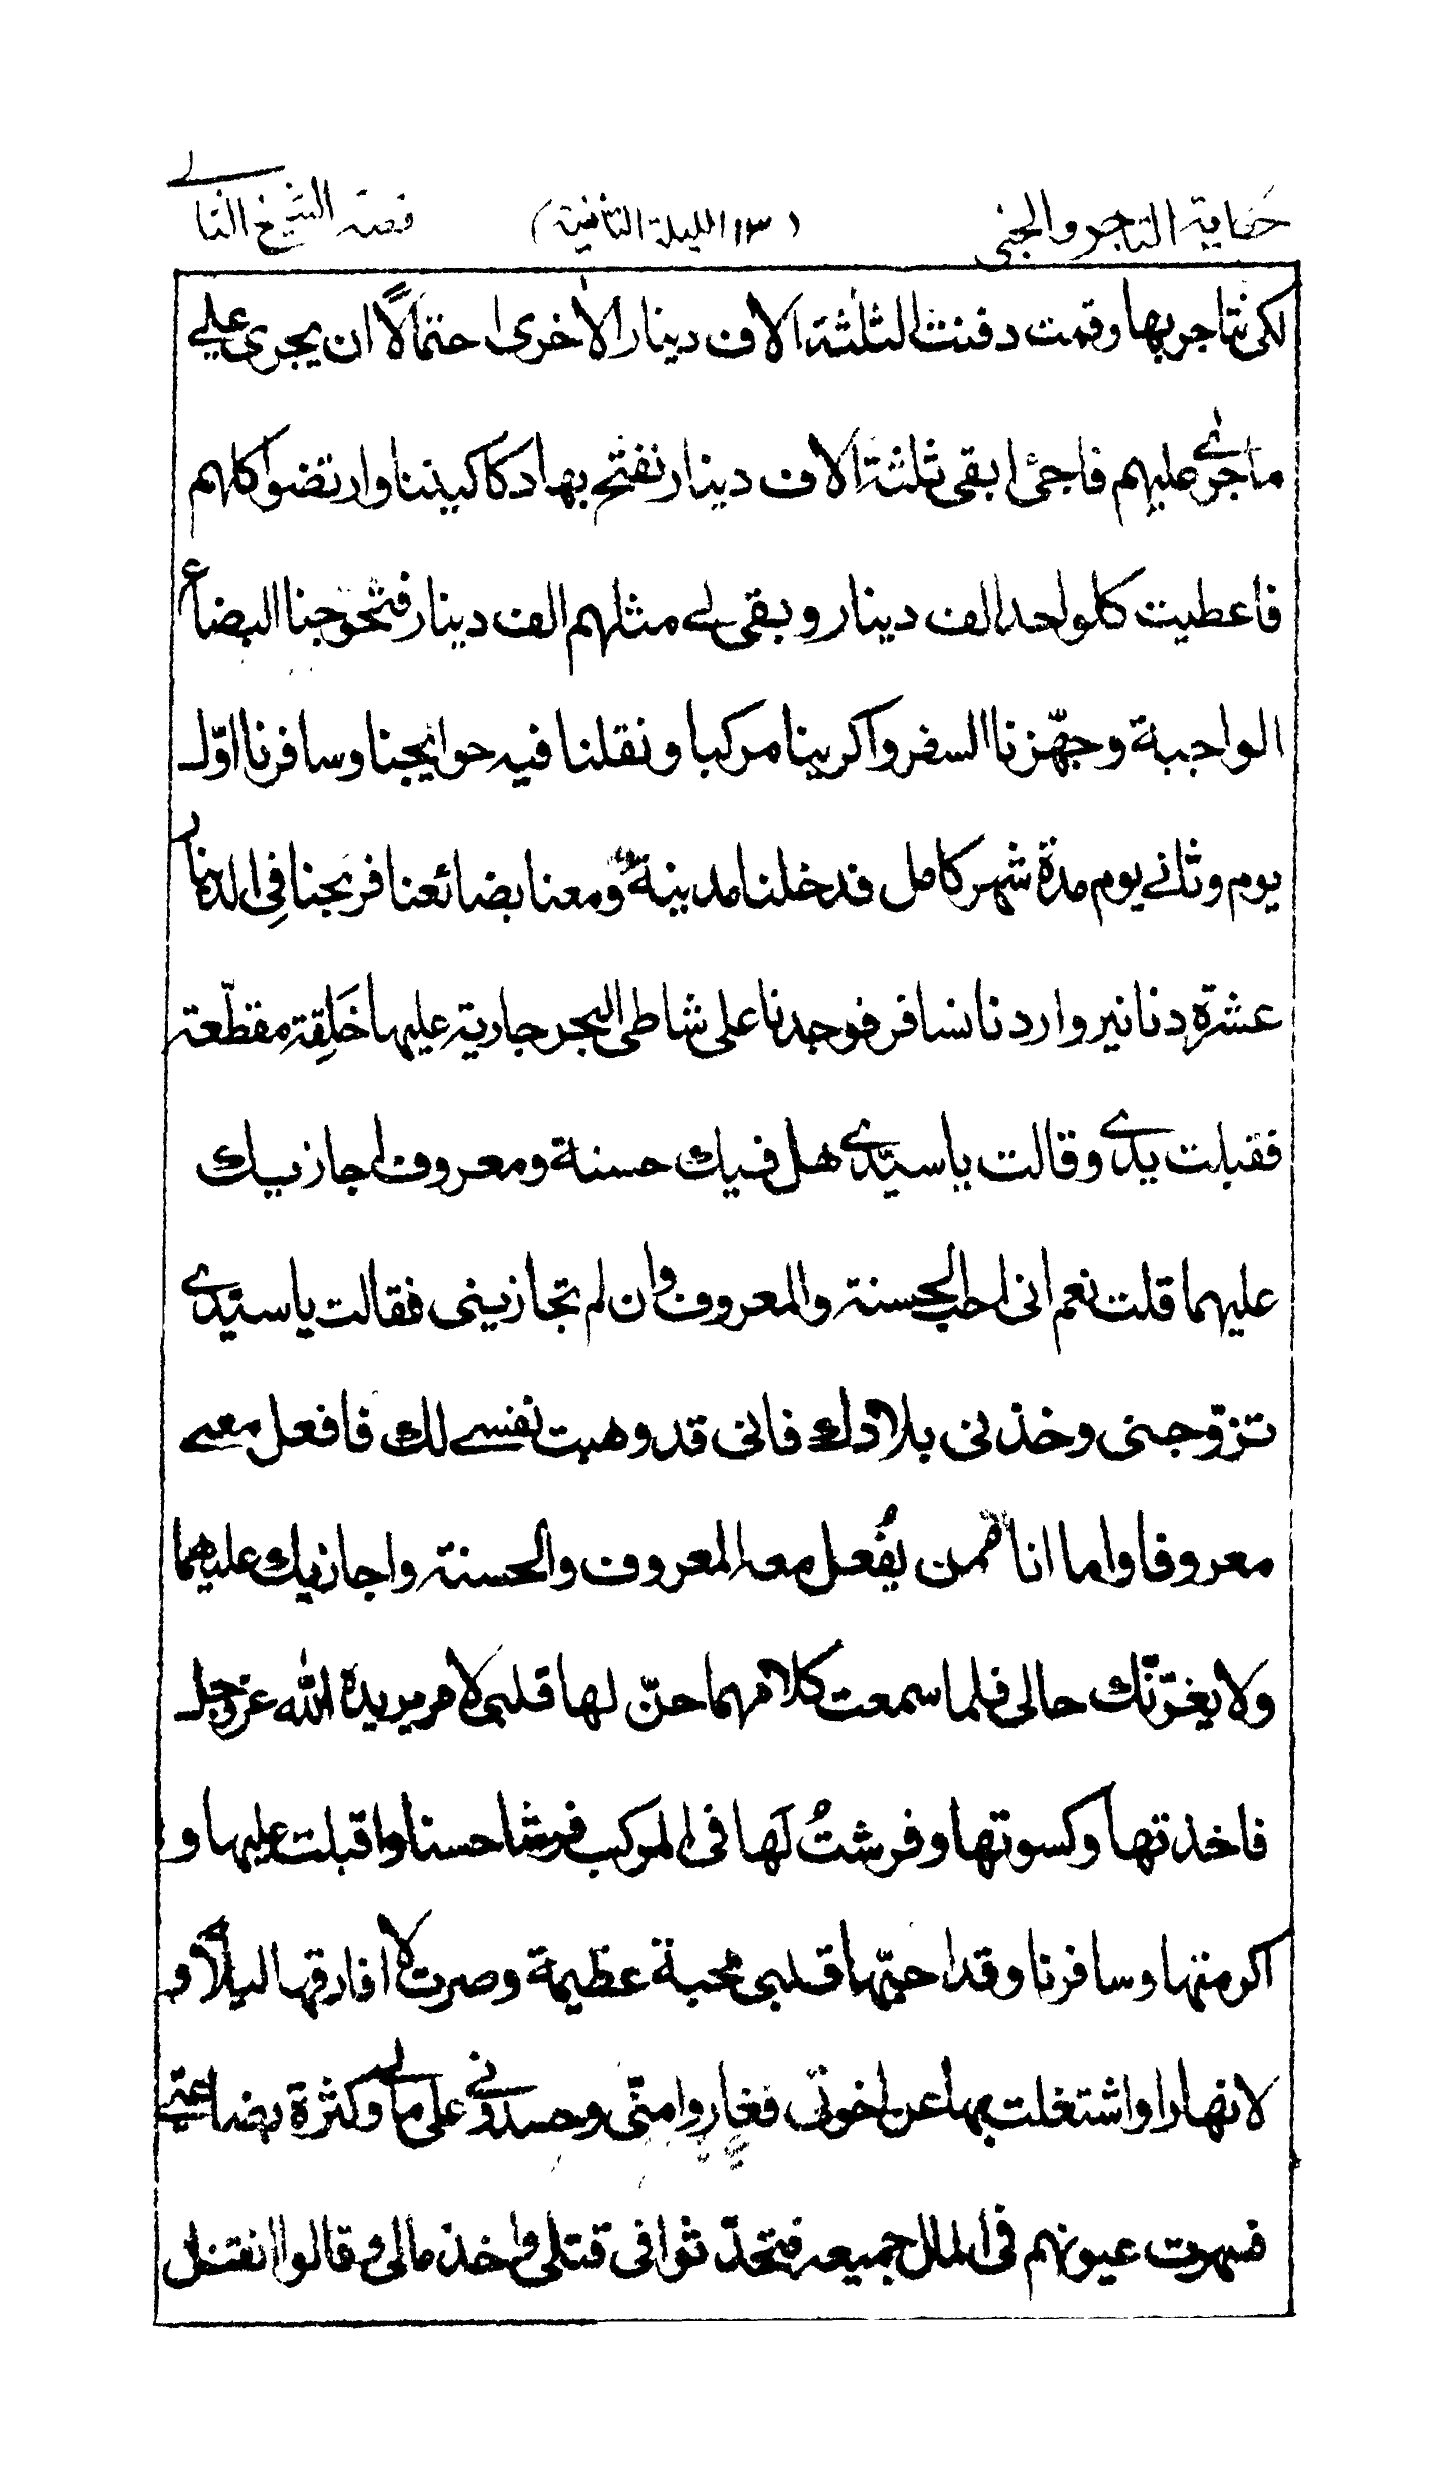 حكاية التاجر والجني (١٣ الليلة الثانية) قصة الشيخ الثاني
لكي نتاجر بها وقمت دفنت الثلثة الاف دينار الاخرى احتمالاً ان يجرى علي
ما جرى عليهم فاجئ ابقى ثلثة الاف دينار نفتح بها دكاكيننا وارتضوا كلهم
فاعطيت كلواحد الف دينار وبقى لي مثلهم الف دينار فتحوجنا البضاع
الواجبة وجهّزنا السفر واكرينا مركبا ونقلنا فيه حوايجنا وسافرنا اوّل
يوم وثاني يوم مدة شهر كامل فدخلنا مدينة ومعنا بضائعنا فربحنا فِي الدينار
عشرة دنانير واردنا نسافر فوجدنا على شاطى البحر جارية عليها خَلِقة مقطّعة
فقبلت يدي وقالت يا سيّدي هل فيك حسنة ومعروف اجازيك
عليهما قلت نعم انى احب الحسنة والمعروف وان لم تجازينى فقالت يا سيّدي
تزوّجنى وخذنى بلادك فانى قد وهبت نفسي لك فافعل معي
معروفا واما انا فممن يُفعل معه المعروف والحسنة واجازيك عليهما
ولا يغرّنّك حالى فلما سمعت كلامهما حنّ لها قلبى لامر يريدة الله عز وجل
فاخذتها وكسوتها وفرشتُ لَها فى المركب فرشا حسنا واقبلت عليها و
اكرمتها وسافرنا وقد احبّتها قلبى محبة عظيمة وصرت لا افارقها ليلاً و
لا نهارا واشتغلت بها عن اخوتى فغاروا منّى وحسدونى على مالي وكثرة بضاعتي
فسهرت عيونهم فى المال جميعه فتحدّثوا فى قتلى واخذ مالى وقالوا نقتل